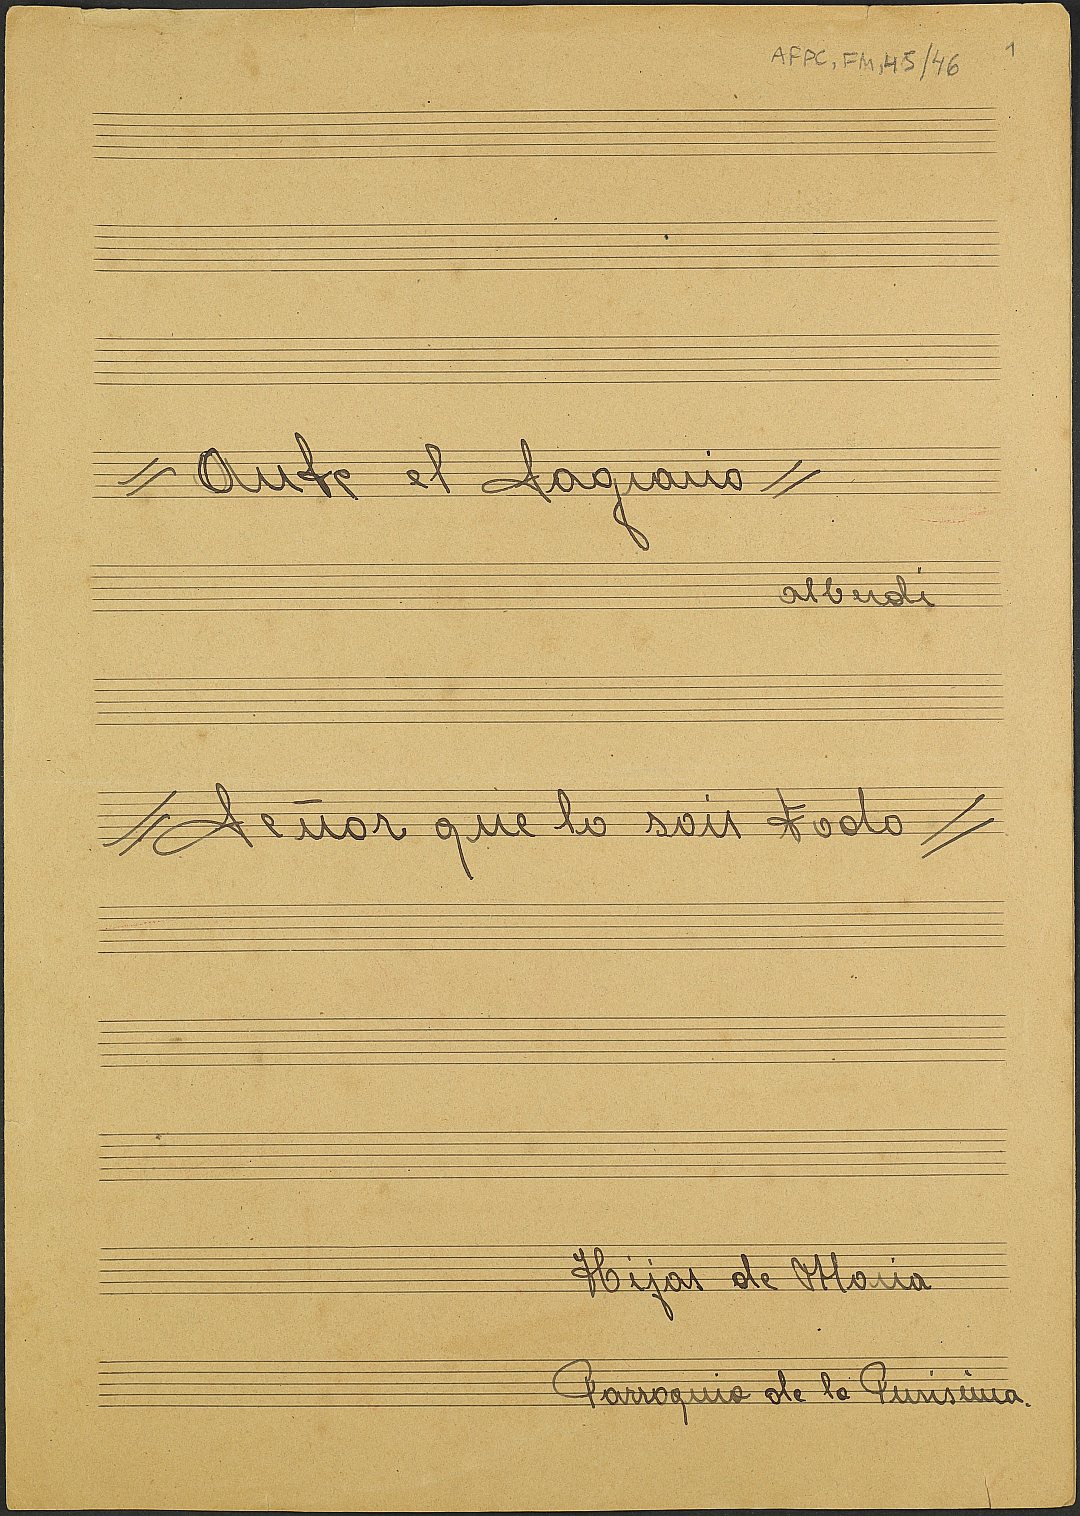 AFPC, FM, 45/46 1
Ante el Sagrario
Alberdi
Señor que lo sois todo
Hijas de Maria
Parroquia de la Purisima.